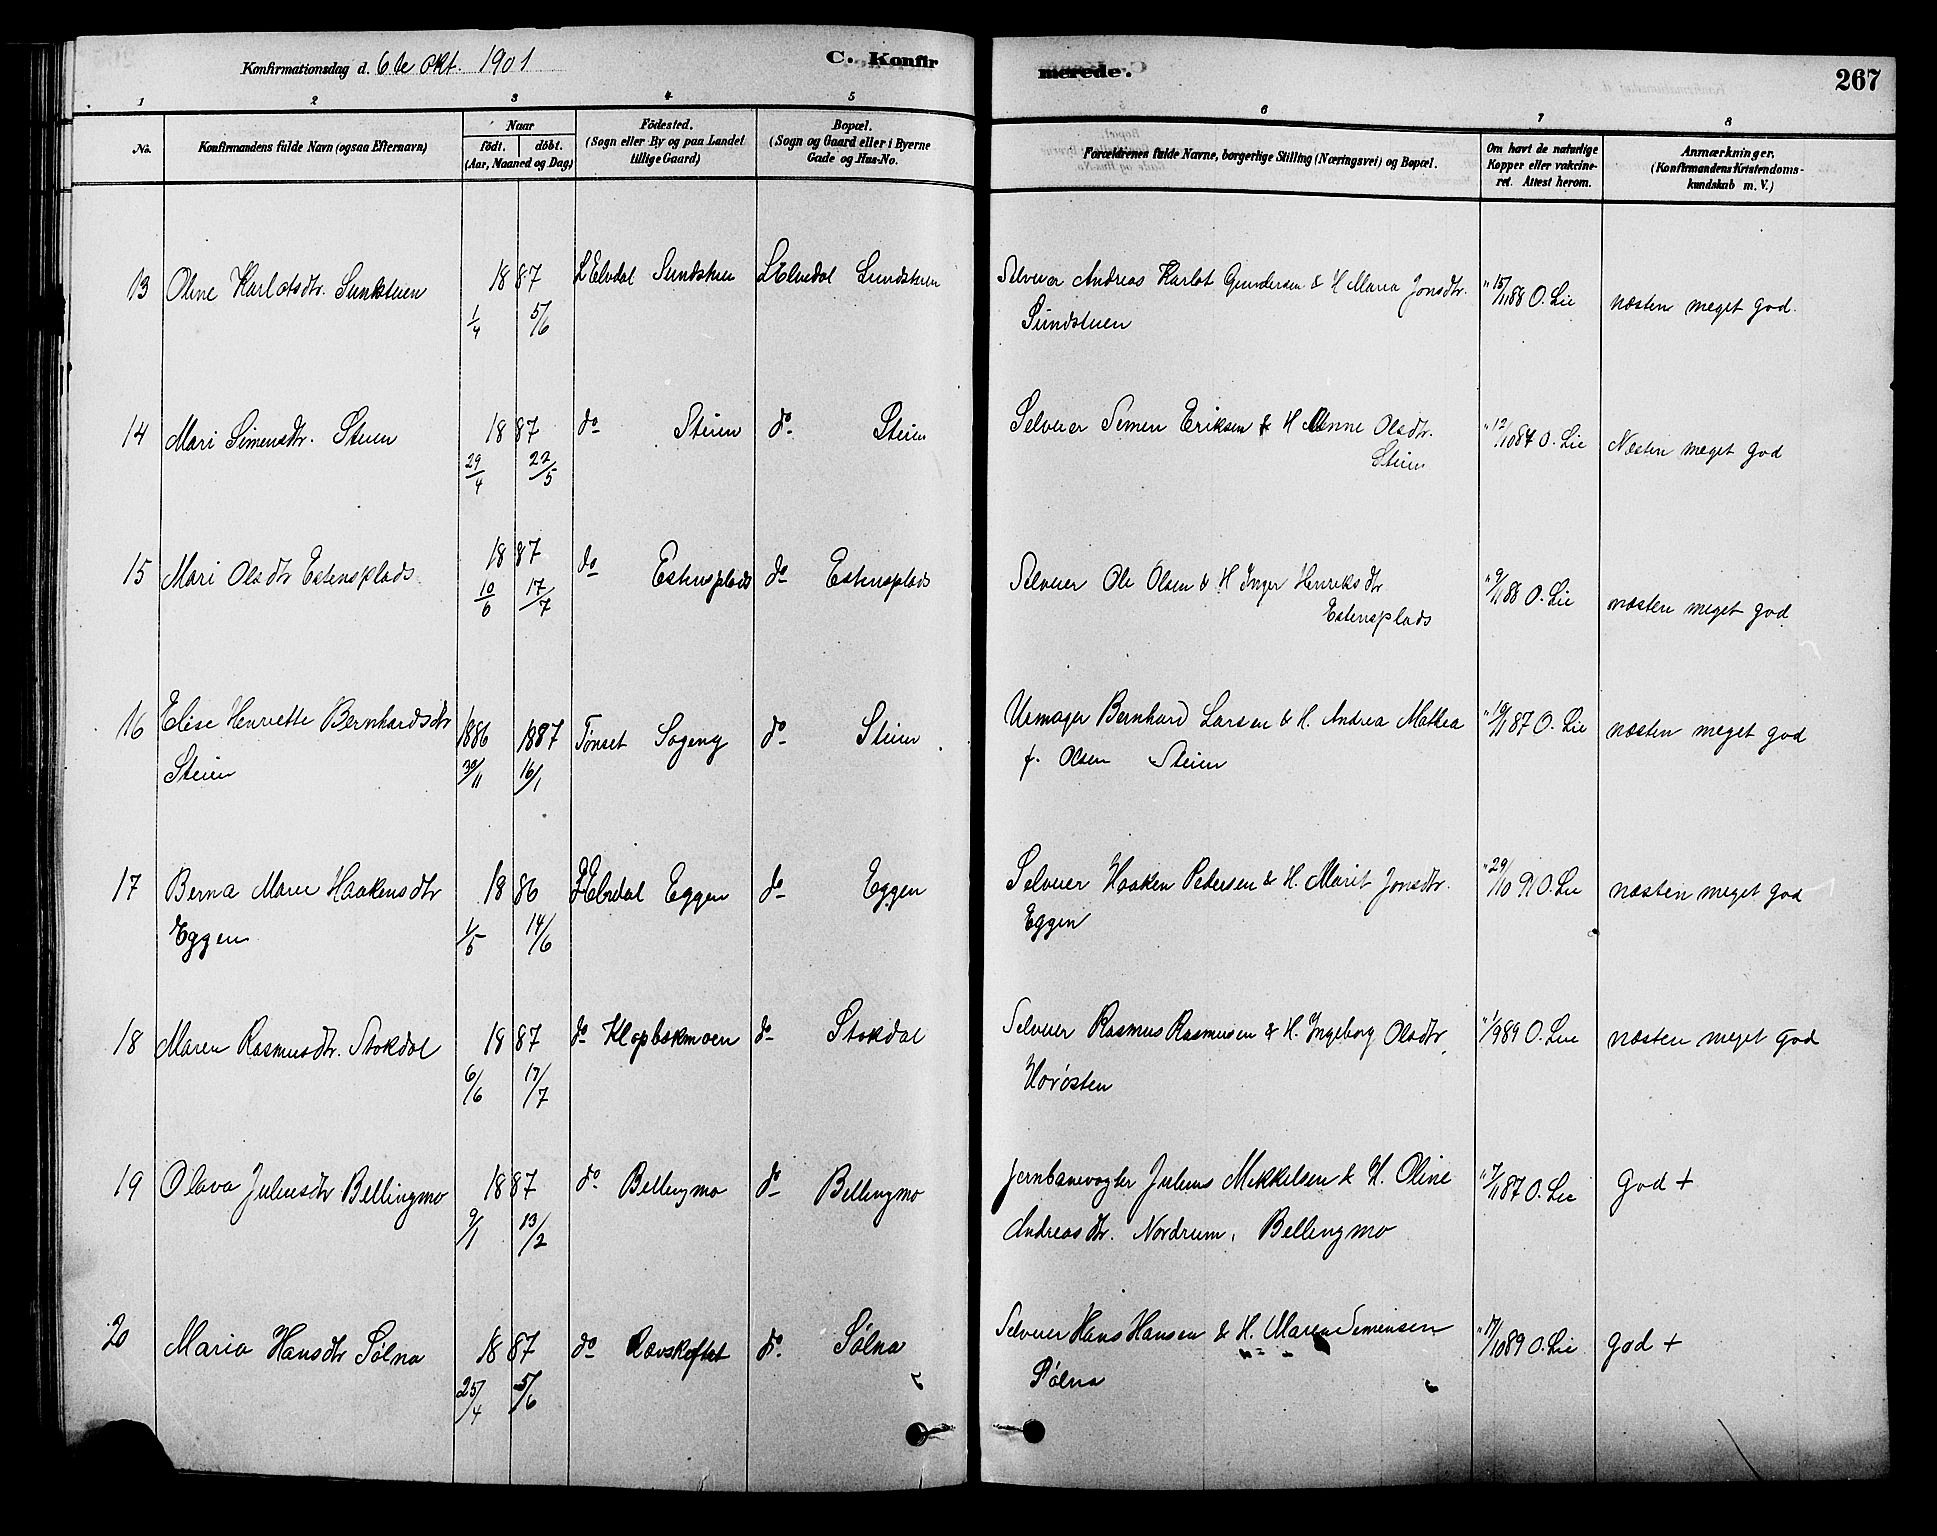 Konfirmationsdag d. 6te Okt. 1901
C. Konfirmerede.
267
1 2 3 4 5 6 7 8
No.
Konfirmandens fulde Navn (ogsaa Efternavn)
Naar
födt. döbt.
(Aar, Maaned og Dag)
Födested.
(Sogn eller By og paa Landet
tillige Gaard)
Bopæl.
(Sogn og Gaard eller i Byerne
Gade og Hus-No.
Forældrenes fulde Navne, borgerlige Stilling (Næringsvei) og Bopæl.
Om havt de naturlige
Kopper eller vakcine-
ret. Attest herom.
Anmærkninger.
(Konfirmandens Kristendoms-
kundskab m. V.)
13 Oline Karlotsdtr. Sunstuen 1887 L Elvdal Sundstuen L Elvedal Sundstuen Selveier Andreas Karlot Gundersen & H Maria Jonsdtr. " 15/11 88 O. Lie næsten meget god.
1/4 5/6 Sundstuen
14 Mari Simensdtr. Steien 1887 do Steien do Steien Selveier Simen Eriksen & H Anne Olsdtr. " 12/10 87 O. Lie Næsten meget god
29/4 22/5 Steien
15 Mari Olsdtr Estensplads 1887 do Estensplads do Estensplads Selveier Ole Olsen & H Inger Henriksdtr " 9/11 88 O. Lie næsten meget god
10/6 17/7 Estensplads
16 Elise Henriette Bernhardsdtr 1886 1887 Tønset Sogeng do Steien Urmager Bernhard Larsen & H. Andrea Mathea " 19/11 87 O. Lie næsten meget god
Steien 30/11 16/1 f. Olsen Steien
17 Berna Marie Haakensdtr 1886 L Elvdal Eggen do Eggen Selveier Haaken Pedersen & H. Marit Jonsdtr. " 29/10 91 O. Lie næsten meget god
Eggen 1/5 14/6 Eggen
18 Maren Rasmusdtr. Stokdal 1887 do Klopbakmoen do Stokdal Selveier Rasmus Rasmussen & H. Ingeborg Olsdtr. " 1/9 89 O. Lie næsten meget god
6/6 17/7 Horøsten
19 Olava Juliusdtr Bellingmo 1887 do Bellingmo do Bellingmo Jernbanevogter Julius Mikkelsen & H. Oline " 7/11 87 O. Lie god +
9/1 13/2 Andreasdtr. Nordrum, Bellingmo
20 Maria Hansdtr Sølna 1887 do Rævskiftet do. Sølna Selveier Hans Hansen & H. Maren Simensen " 17/10 89 O. Lie god +
25/4 5/6 Sølna